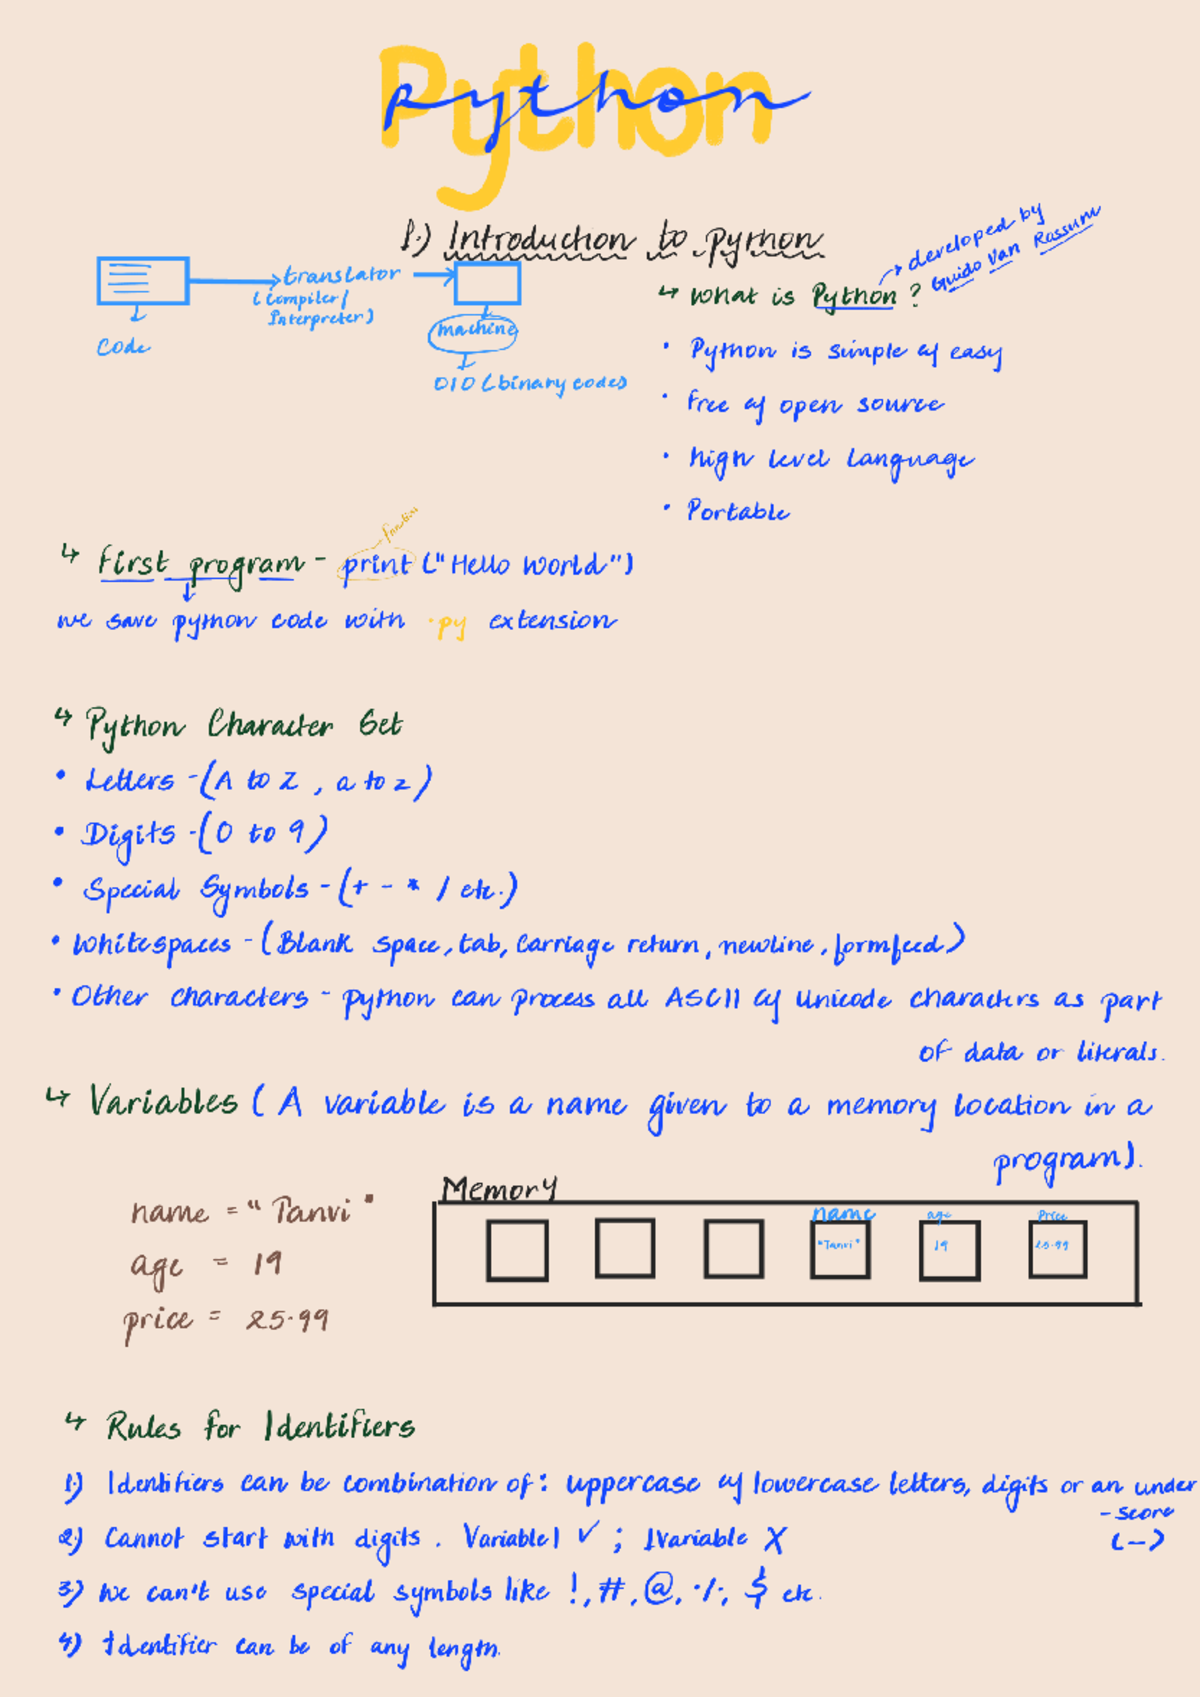 Python
python
1.) Introduction to python
code
translator
(Compiler/
Interpreter)
machine
010 (binary codes)
↳ What is Python ?
→ developed by
Guido Van Rossum
• Python is simple & easy
• Free & open source
• high level language
• Portable
↳ First program - print ("Hello World")
function
we save python code with .py extension
↳ Python Character Set
• Letters - (A to Z , a to z)
• Digits - (0 to 9)
• Special Symbols - (+ - * / etc.)
• Whitespaces - (Blank space, tab, carriage return, newline, formfeed)
• Other characters - python can process all ASCII & Unicode characters as part
of data or literals.
↳ Variables ( A variable is a name given to a memory location in a
program).
name = "Tanvi"
age = 19
price = 25.99
Memory
name age Price
"Tanvi" 19 25.99
↳ Rules for Identifiers
1.) Identifiers can be combination of : uppercase & lowercase letters, digits or an under
- score
(_)
2.) Cannot start with digits . Variable1 ✓ ; 1Variable X
3.) We can't use special symbols like !, #, @, %, $ etc.
4.) Identifier can be of any length.